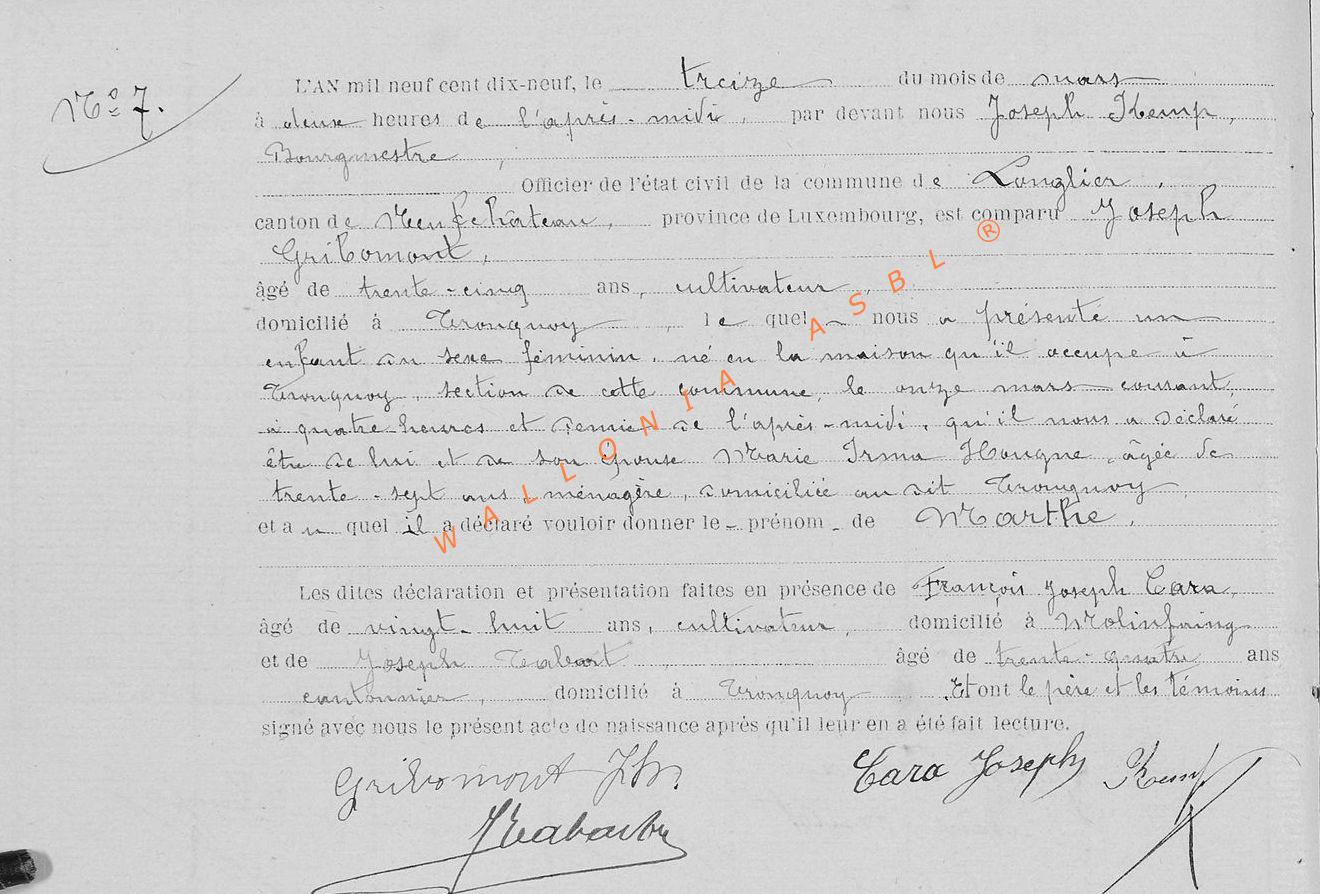 Nº 7.
L'AN mil neuf cent dix-neuf, le treize du mois de mars
à deux heures de l'après-midi, par devant nous Joseph Kemp,
Bourgmestre,
Officier de l'état civil de la commune de Longlier,
canton de Neufchâteau, province de Luxembourg, est comparu Joseph
Gribomont,
âgé de trente-cinq ans, cultivateur,
domicilié à Tronquoy, le quel nous a présenté un
enfant du sexe féminin, né en la maison qu'il occupe à
Tronquoy, section de cette commune, le onze mars courant,
à quatre heures et demie de l'après-midi, qu'il nous a déclaré
être de lui et de son épouse Marie Irma Hougne, âgée de
trente-sept ans, ménagère, domiciliée au dit Tronquoy,
et au quel il a déclaré vouloir donner le prénom de Marthe.
Les dites déclaration et présentation faites en présence de François Joseph Cara,
âgé de vingt-huit ans, cultivateur, domicilié à Molinfaing
et de Joseph Tabart âgé de trente-quatre ans
cantonnier, domicilié à Tronquoy. Et ont le père et les témoins
signé avec nous le présent acte de naissance après qu'il leur en a été fait lecture.
Gribomont Jh. Cara Joseph Kemp
WALLONIA ASBL ®